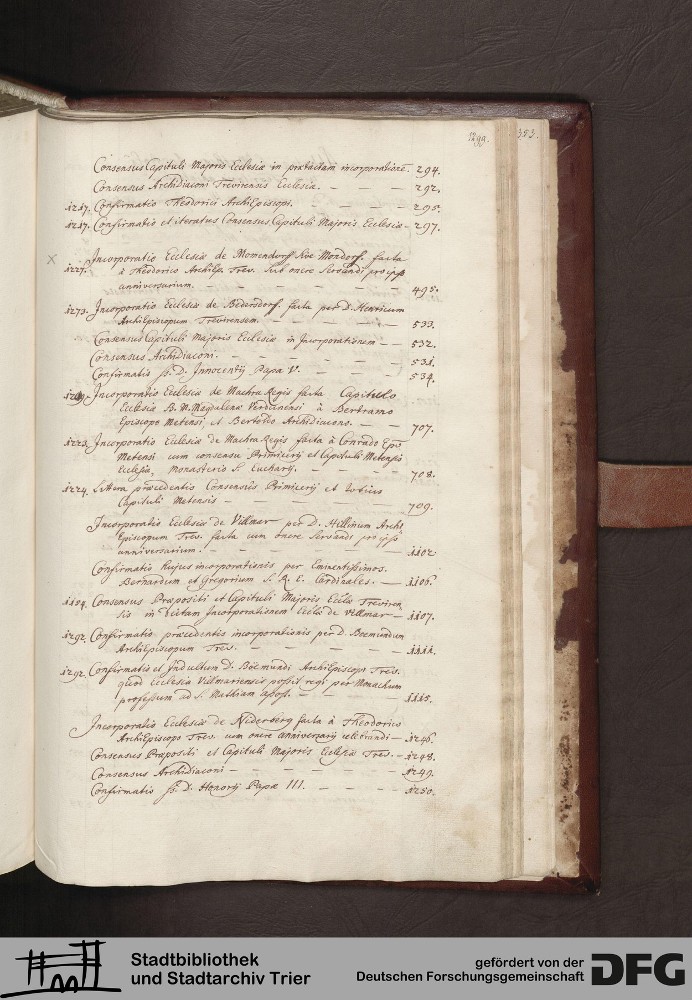 1299. 323.
Consensus Capituli Majoris Ecclesiæ in prætactam incorporationē. 294.
Consensus Archidiaconi Trevirensis Ecclesiæ. — — — 292.
1217. Confirmatio Theodorici ArchiEpiscopi. — — — 295.
1217. Confirmatio et iteratus Consensus Capituli Majoris Ecclesiæ — 297.
Incorporatio Ecclesiæ de Momendorf sive Mondorf facta
1227. à Theodorico ArchiEp. Trev. sub onere servandi pro ipso
anniversarium. — — — 495.
1273. Incorporatio Ecclesiæ de Bedersdorf facta per D. Henricum
ArchiEpiscopum Trevirensem. — — — 533.
Consensus Capituli Majoris Ecclesiæ in Incorporationem — — 532.
Consensus Archidiaconi. — — — 531.
Confirmatio D. Innocentij Papæ V. — — — 534.
Incorporatio Ecclesiæ de Machra Regis facta Capitulo
Ecclesiæ B. M. Magdalenæ Verdunensi à Bertramo
Episcopo Metensi, et Bertoldo Archidiacono. — — 707.
1223. Incorporatio Ecclesiæ de Machra Regis facta à Conrado Epō
Metensi cum consensu Primicerij et Capituli Metensis
Ecclesiæ, Monasterio S. Eucharij. — — — 708.
1224. Littera præcedentis Consensus Primicerij et totius
Capituli Metensis — — — 709.
Incorporatio Ecclesiæ de Villmar per D. Hillinum Archi
Episcopum Trev. facta cum onere servandi pro ipso
anniversarium. — — — 1102.
Confirmatio hujus incorporationis per Eminentissimos.
Bernardum et Gregorium S. R. E. Cardinales. — 1106.
Consensus Præpositi et Capituli Majoris Eccłæ Treviren
sis in dictam Incorporationem Eccłæ de Villmar — 1107.
1292. Confirmatio præcedentis incorporationis per D. Boemundum
ArchiEpiscopum Trev. — — — 1111.
1292. Confirmatio et Indultum D. Boëmundi ArchiEpiscopi Trev.
quod Ecclesia Villmariensis possit regi per Monachum
professum ad S. Mathiam Apost. — — — 1115.
Incorporatio Ecclesiæ de Niderberg facta à Theodorico
ArchiEpiscopo Trev. cum onere anniversarij celebrandi — 1246.
Consensus Præpositi et Capituli Majoris Ecclesiæ Trev. — 1248.
Consensus Archidiaconi — — — 1249.
Confirmatio D. Honorij Papæ III. — — — 1250.
Stadtbibliothek
und Stadtarchiv Trier
gefördert von der
Deutschen Forschungsgemeinschaft
DFG